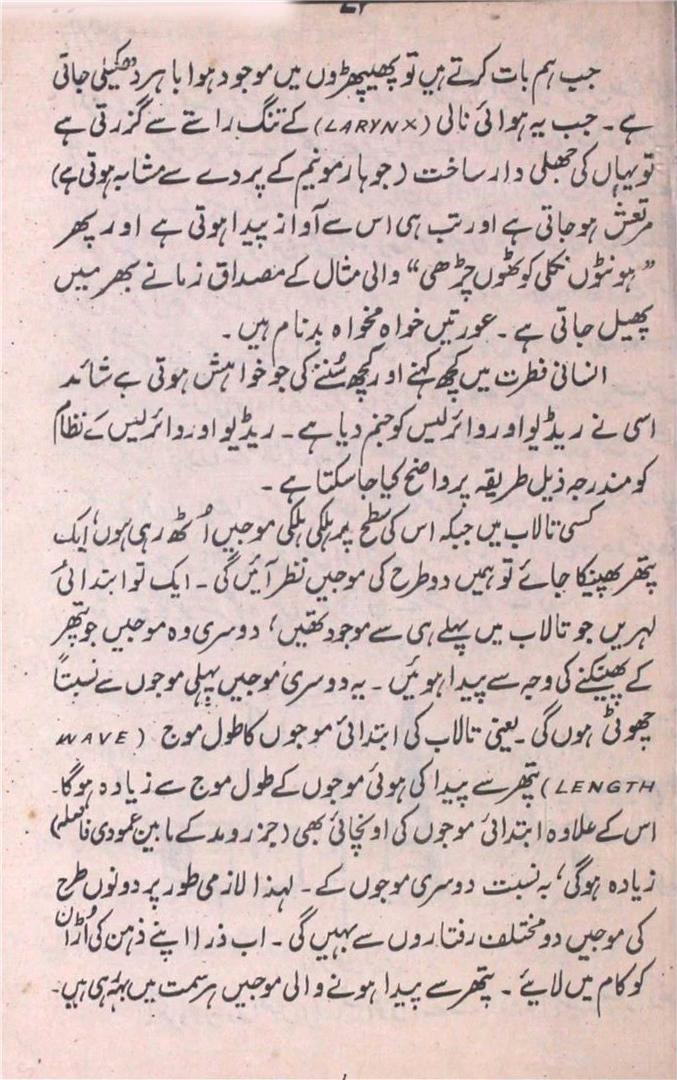 جب ہم بات کرتے ہیں تو پھیپھڑوں میں موجود ہوا باہر دھکیلی جاتی
ہے۔ جب یہ ہوائی نالی (LARYNX) کے تنگ راستے سے گزرتی ہے
تو یہاں کی جھلی دار ساخت (جو ہارمونیم کے پردے سے مشابہ ہوتی ہے)
مرتعش ہو جاتی ہے اور تب ہی اس سے آواز پیدا ہوتی ہے اور پھر
”ہونٹوں نکلی کوٹھوں چڑھی“ والی مثال کے مصداق زمانے بھر میں
پھیل جاتی ہے۔ عورتیں خواہ مخواہ بدنام ہیں۔
انسانی فطرت میں کچھ کہنے اور کچھ سُننے کی جو خواہش ہوتی ہے شائد
اسی نے ریڈیو اور وائرلیس کو جنم دیا ہے۔ ریڈیو اور وائرلیس کے نظام
کو مندرجہ ذیل طریقہ پر واضح کیا جا سکتا ہے۔
کسی تالاب میں جبکہ اس کی سطح پر ہلکی ہلکی موجیں اُٹھ رہی ہوں، ایک
پتھر پھینکا جائے تو ہمیں دو طرح کی موجیں نظر آئیں گی۔ ایک تو ابتدائی
لہریں جو تالاب میں پہلے ہی سے موجود تھیں، دوسری وہ موجیں جو پتھر
کے پھینکنے کی وجہ سے پیدا ہوئیں۔ یہ دوسری موجیں پہلی موجوں سے نسبتاً
چھوٹی ہوں گی۔ یعنی تالاب کی ابتدائی موجوں کا طول موج (WAVE
LENGTH) پتھر سے پیدا کی ہوئی موجوں کے طول موج سے زیادہ ہوگا۔
اس کے علاوہ ابتدائی موجوں کی اونچائی بھی (جزر و مد کے مابین عمودی فاصلہ)
زیادہ ہوگی، بہ نسبت دوسری موجوں کے۔ لہذا لازمی طور پر دونوں طرح
کی موجیں دو مختلف رفتاروں سے بہیں گی۔ اب ذرا اپنے ذہن کی اُڑان
کو کام میں لائیے۔ پتھر سے پیدا ہونے والی موجیں ہر سمت میں بہہ رہی ہیں۔